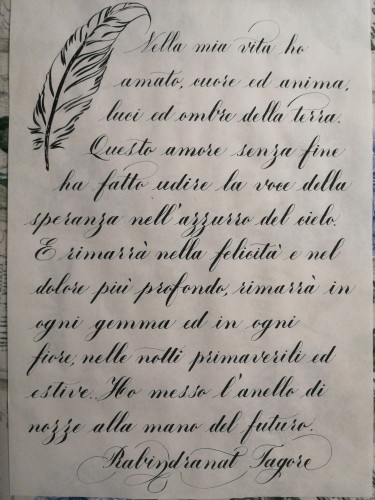 Nella mia vita ho
amato, cuore ed anima,
luci ed ombre della terra.
Questo amore senza fine
ha fatto udire la voce della
speranza nell'azzurro del cielo.
E rimarrà nella felicità e nel
dolore più profondo, rimarrà in
ogni gemma ed in ogni
fiore, nelle notti primaverili ed
estive. Ho messo l'anello di
nozze alla mano del futuro.
Rabindranat Tagore